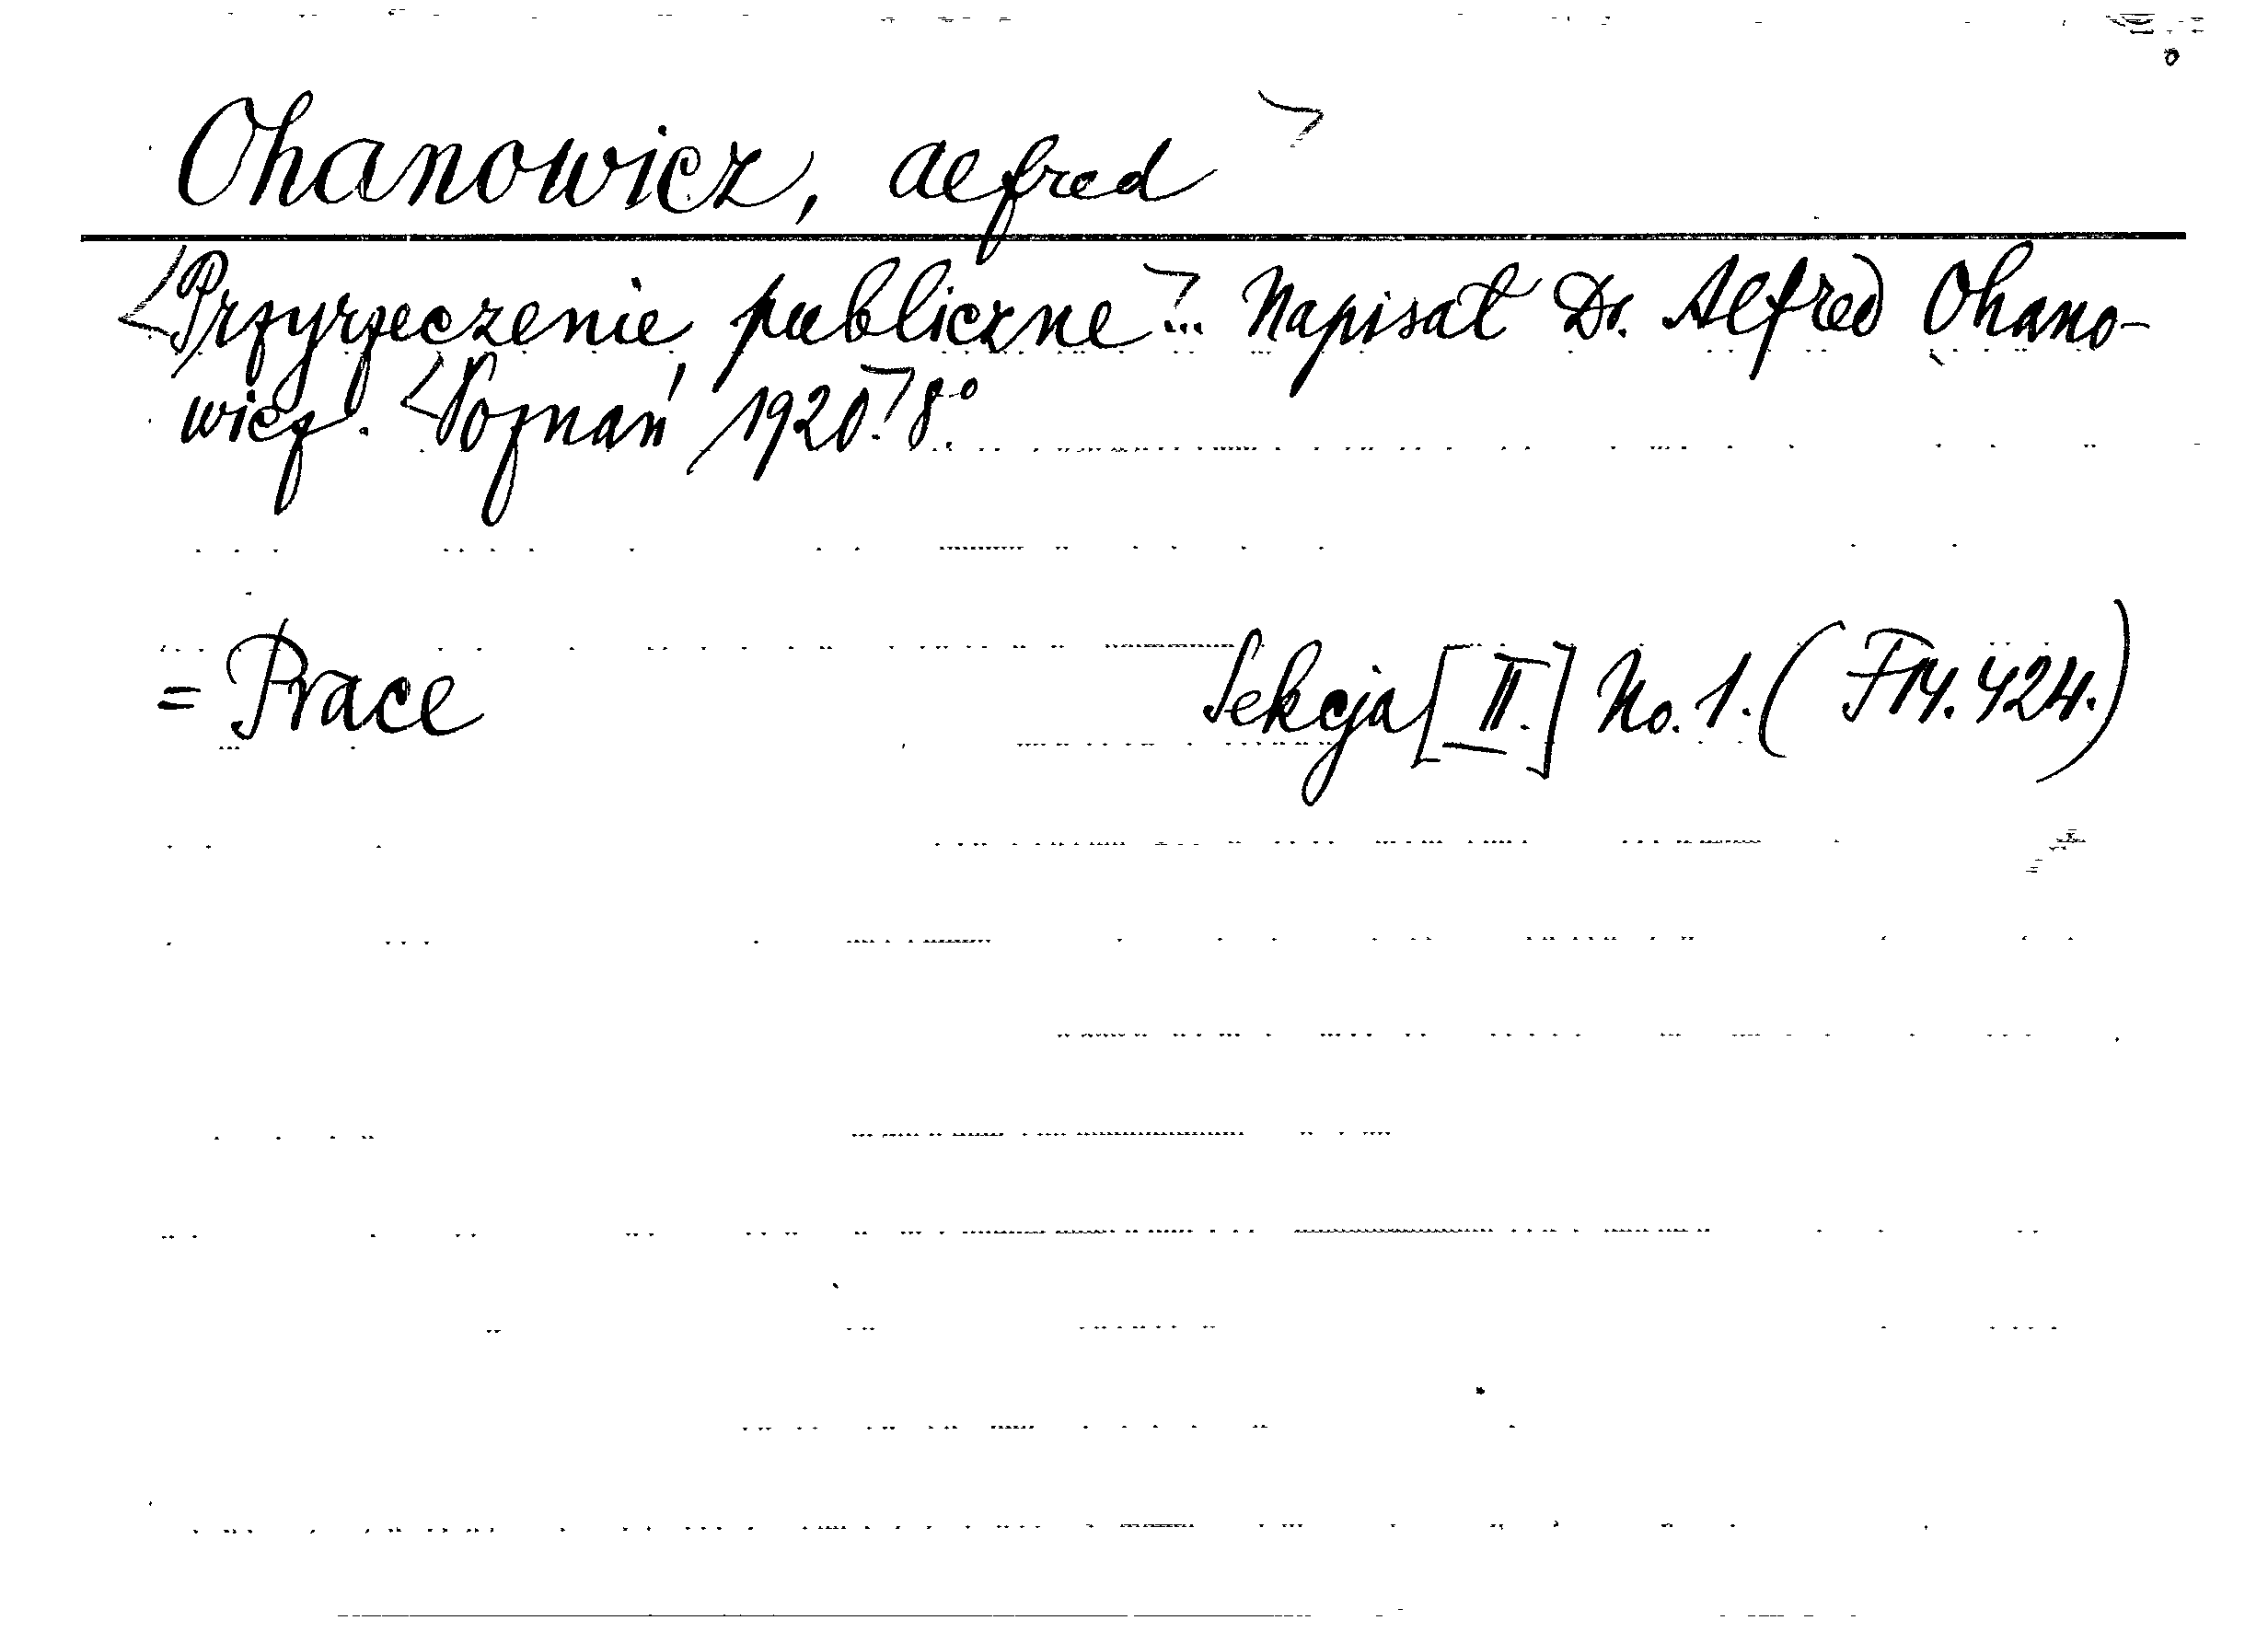 Ohanowicz, Alfred
<Przyrzeczenie publiczne>... Napisał Dr. Alfred Ohano-
wicz. <Poznań 1920.> 8°.
= Prace Sekcja [II.] No. 1. ( F14. 424.)